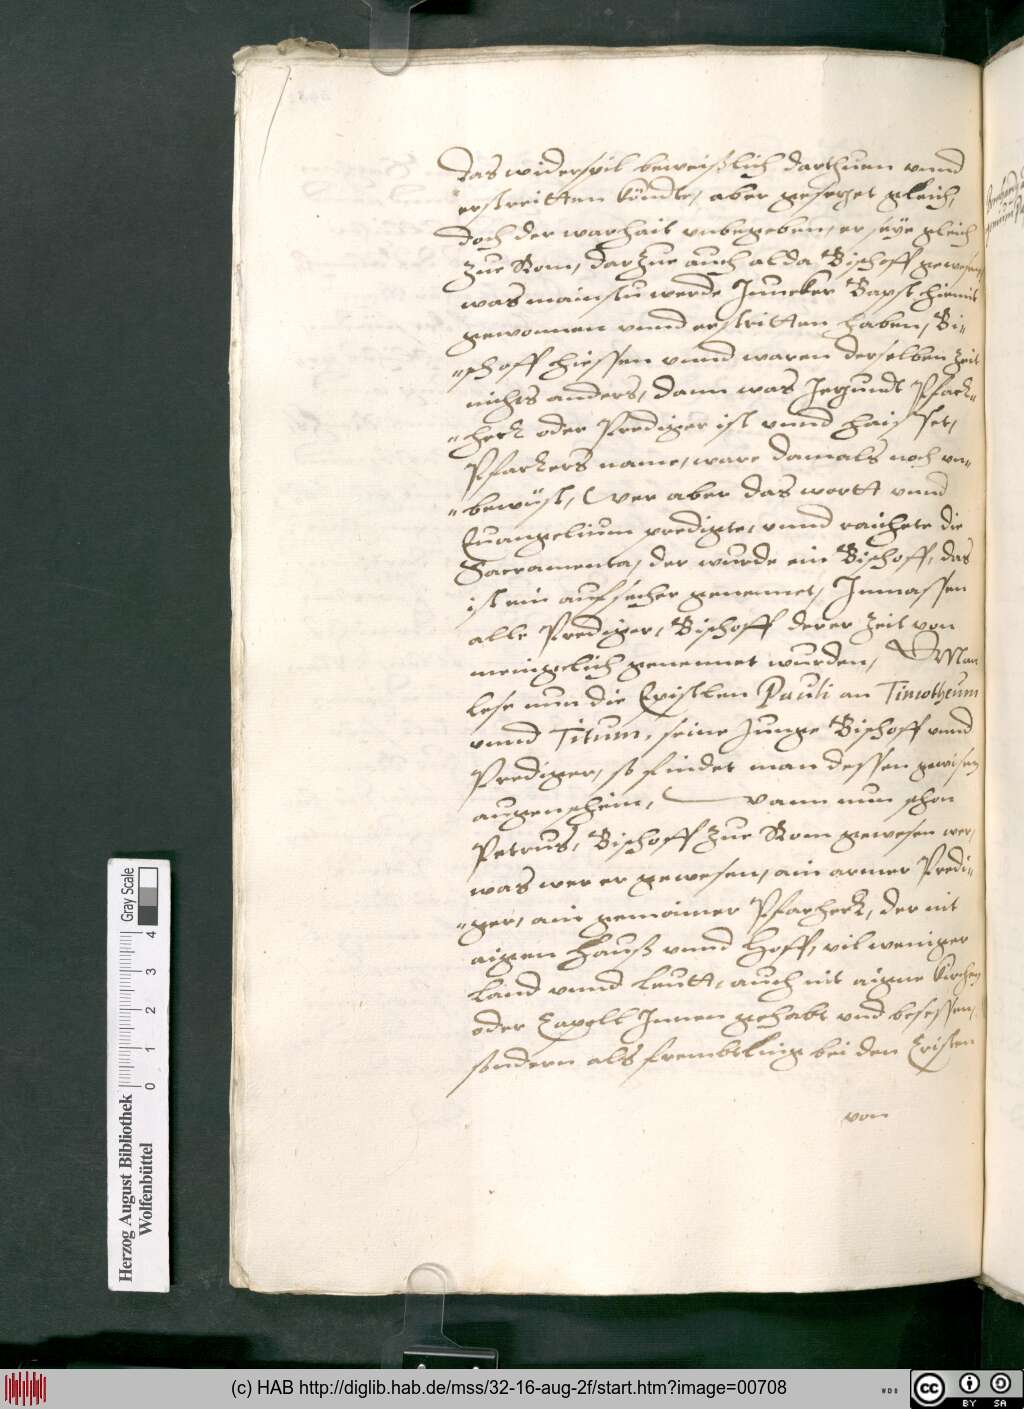 das widerspil beweißlich darthuen vnnd
erstreitten köndte, aber gesetzet gleich,
doch der warhait vnbegeben, er seye gleich
zue Rom, darzue auch alda Bischoff gewesen,
was mainstu werde Juncker Bapst hiemit
gewonnen vnnd erstritten haben, Bi-
schoff hiessen vnnd waren derselben Zeit
nichts anders, dann was Jetzundt Pfarr-
herr oder Prediger ist vnnd haisset,
Pfarrers name, ware damals noch vn-
bewüst, Wer aber das wortt vnnd
Euangelium predigte, vnnd raichete die
Sacramenta, der wurde ein Bischoff, das
ist ein aufseher genennet, Inmassen
alle Prediger, Bischoff derer Zeit von
meniglich genennet wurden, Man
lese nun die Epistlen Pauli an Timotheum
vnnd Titum, seine Junge Bischoff vnnd
Prediger, so findet man dessen gewisen
augenschein, Wann nun schon
Petrus, Bischoff zue Rom gewesen wer,
was wer er gewesen, ain armer Predi-
ger, ain gemainer Pfarherr, der nit
aigen Hauß vnnd Hoff, vil weniger
Land vnnd Leutt, auch nit aigne kirchen
oder Capell Innen gehabt vnd besessen,
sondern als frembtling bei den Cristen
von
Herzog August Bibliothek
Wolfenbüttel
0 1 2 3 4
Gray Scale
(c) HAB http://diglib.hab.de/mss/32-16-aug-2f/start.htm?image=00708
WDB
cc BY SA